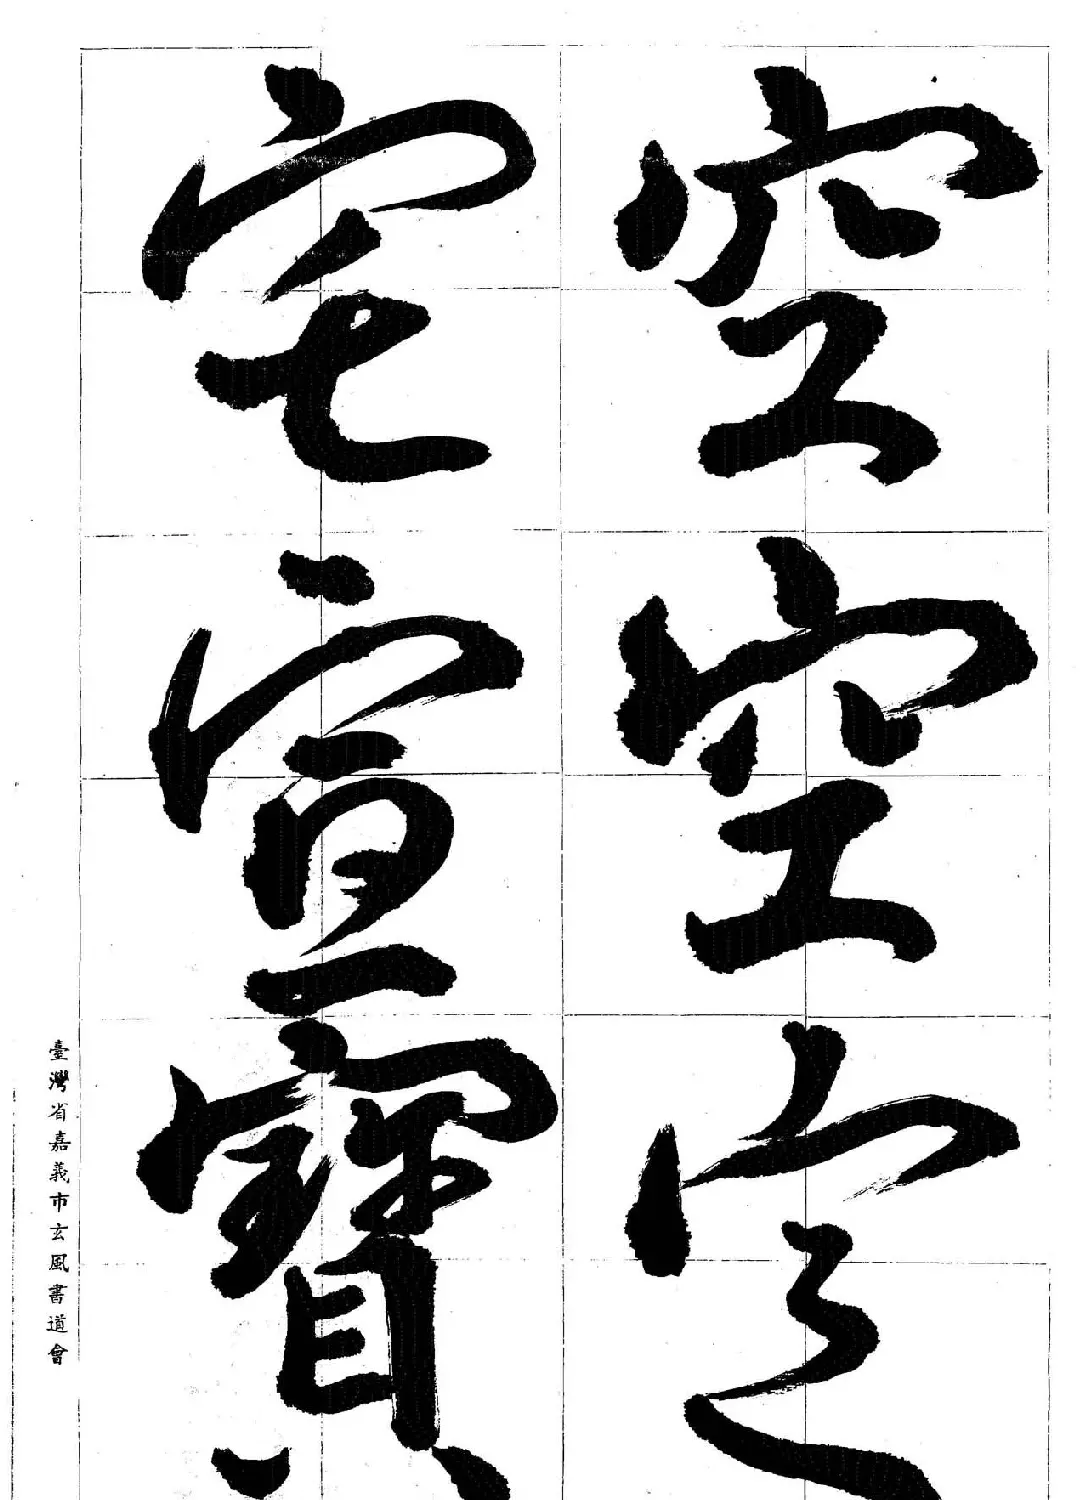 空空定
宅宣寶
臺灣省嘉義市玄風書道會